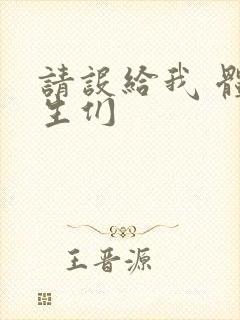 請設給我 體
生们
王晋源